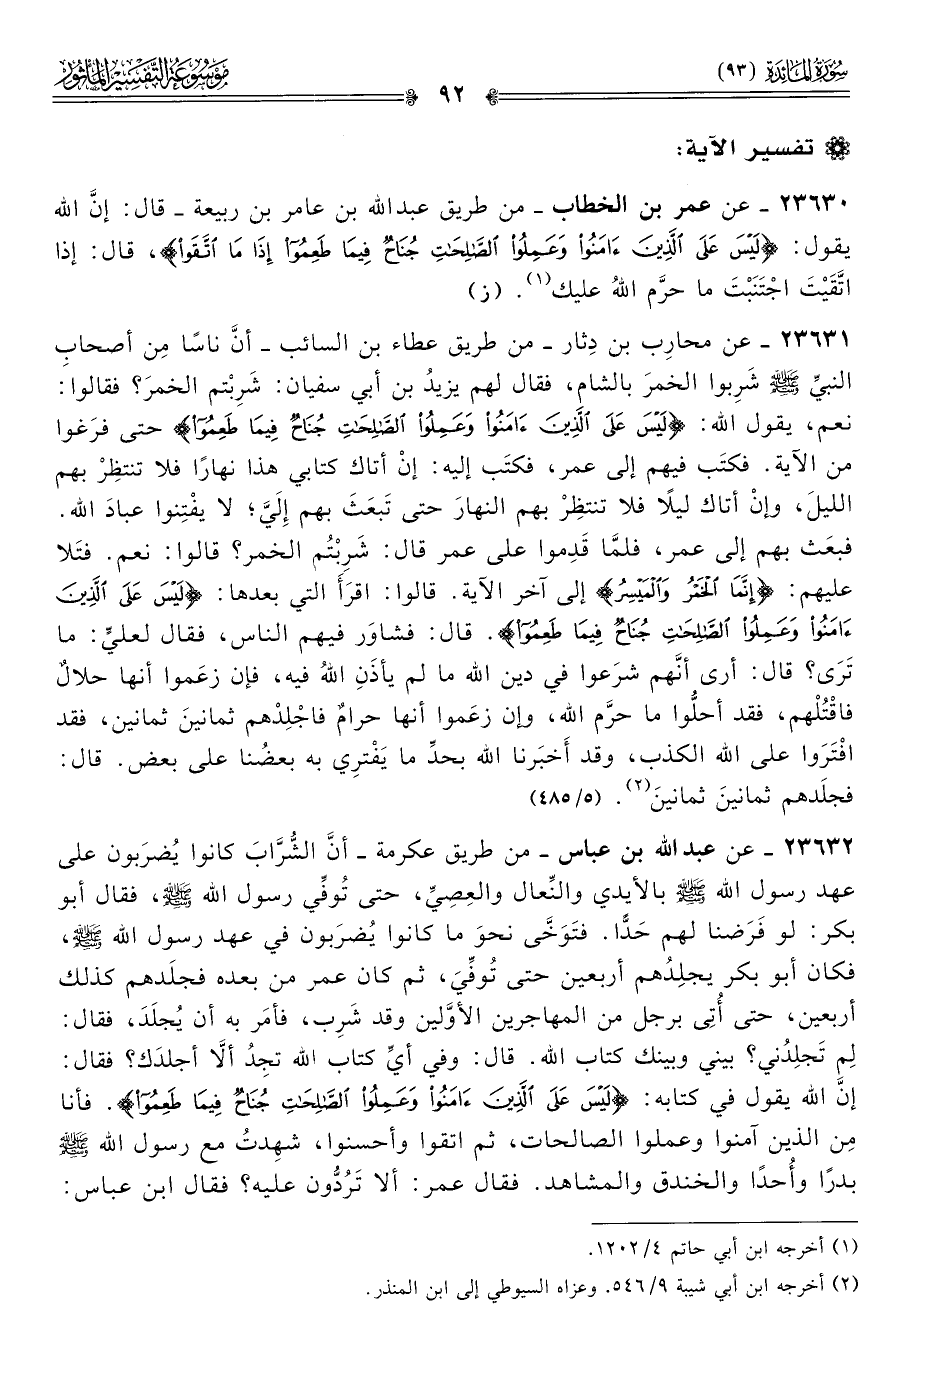 سُورَةُ المَائِدَة (٩٣)
٩٢
مَوْسُوعَة التَّفْسِيرِ المَأْثُور
تفسير الآية:
٢٣٦٣٠ ـ عن عمر بن الخطاب ـ من طريق عبدالله بن عامر بن ربيعة ـ قال: إنَّ الله
يقول: ﴿لَيْسَ عَلَى ٱلَّذِينَ ءَامَنُوا۟ وَعَمِلُوا۟ ٱلصَّـٰلِحَـٰتِ جُنَاحٌ فِيمَا طَعِمُوٓا۟ إِذَا مَا ٱتَّقَوا۟﴾، قال: إذا
اتَّقَيْتَ اجْتَنَبْتَ ما حرَّم اللهُ عليك(١). (ز)
٢٣٦٣١ ـ عن محارِب بن دِثار ـ من طريق عطاء بن السائب ـ أنَّ ناسًا مِن أصحابِ
النبيِّ ﷺ شَرِبوا الخمرَ بالشام، فقال لهم يزيدُ بن أبي سفيان: شَرِبْتم الخمرَ؟ فقالوا:
نعم، يقول الله: ﴿لَيْسَ عَلَى ٱلَّذِينَ ءَامَنُوا۟ وَعَمِلُوا۟ ٱلصَّـٰلِحَـٰتِ جُنَاحٌ فِيمَا طَعِمُوٓا۟﴾ حتى فرَغوا
من الآية. فكتَب فيهم إلى عمر، فكتَب إليه: إنْ أتاك كتابي هذا نهارًا فلا تنتظِرْ بهم
الليلَ، وإنْ أتاك ليلًا فلا تنتظِرْ بهم النهارَ حتى تَبعَثَ بهم إلَيَّ؛ لا يفْتِنوا عبادَ الله.
فبعَث بهم إلى عمر، فلمَّا قَدِموا على عمر قال: شَرِبْتُم الخمر؟ قالوا: نعم. فتَلا
عليهم: ﴿إِنَّمَا ٱلْخَمْرُ وَٱلْمَيْسِرُ﴾ إلى آخر الآية. قالوا: اقرَأ التي بعدها: ﴿لَيْسَ عَلَى ٱلَّذِينَ
ءَامَنُوا۟ وَعَمِلُوا۟ ٱلصَّـٰلِحَـٰتِ جُنَاحٌ فِيمَا طَعِمُوٓا۟﴾. قال: فشاوَر فيهم الناس، فقال لعليٍّ: ما
تَرَى؟ قال: أرى أنَّهم شرَعوا في دين الله ما لم يأذَنِ اللهُ فيه، فإن زعَموا أنها حلالٌ
فاقْتُلْهم، فقد أحلُّوا ما حرَّم الله، وإن زعَموا أنها حرامٌ فاجْلِدْهم ثمانينَ ثمانين، فقد
افْتَرَوا على الله الكذب، وقد أَخبَرنا الله بحدِّ ما يَفْتري به بعضُنا على بعض. قال:
فجلَدهم ثمانينَ ثمانينَ(٢). (٤٨٥/٥)
٢٣٦٣٢ ـ عن عبدالله بن عباس ـ من طريق عكرمة ـ أنَّ الشُّرَّابَ كانوا يُضرَبون على
عهد رسول الله ﷺ بالأيدي والنِّعال والعِصِيِّ، حتى تُوفِّي رسول الله ﷺ، فقال أبو
بكر: لو فَرَضنا لهم حَدًّا. فتَوَخَّى نحوَ ما كانوا يُضرَبون في عهد رسول الله ﷺ،
فكان أبو بكر يجلِدُهم أربعين حتى تُوفِّيَ، ثم كان عمر من بعده فجلَدهم كذلك
أربعين، حتى أُتِى برجل من المهاجرين الأوَّلين وقد شَرِب، فأمَر به أن يُجلَدَ، فقال:
لِم تَجلِدُني؟ بيني وبينك كتاب الله. قال: وفي أيِّ كتاب الله تجِدُ ألَّا أجلدَك؟ فقال:
إنَّ الله يقول في كتابه: ﴿لَيْسَ عَلَى ٱلَّذِينَ ءَامَنُوا۟ وَعَمِلُوا۟ ٱلصَّـٰلِحَـٰتِ جُنَاحٌ فِيمَا طَعِمُوٓا۟﴾. فأنا
مِن الذين آمنوا وعملوا الصالحات، ثم اتقوا وأحسنوا، شهِدتُ مع رسول الله ﷺ
بدرًا وأُحدًا والخندق والمشاهد. فقال عمر: ألا تَرُدُّون عليه؟ فقال ابن عباس:
(١) أخرجه ابن أبي حاتم ١٢٠٢/٤.
(٢) أخرجه ابن أبي شيبة ٥٤٦/٩. وعزاه السيوطي إلى ابن المنذر.